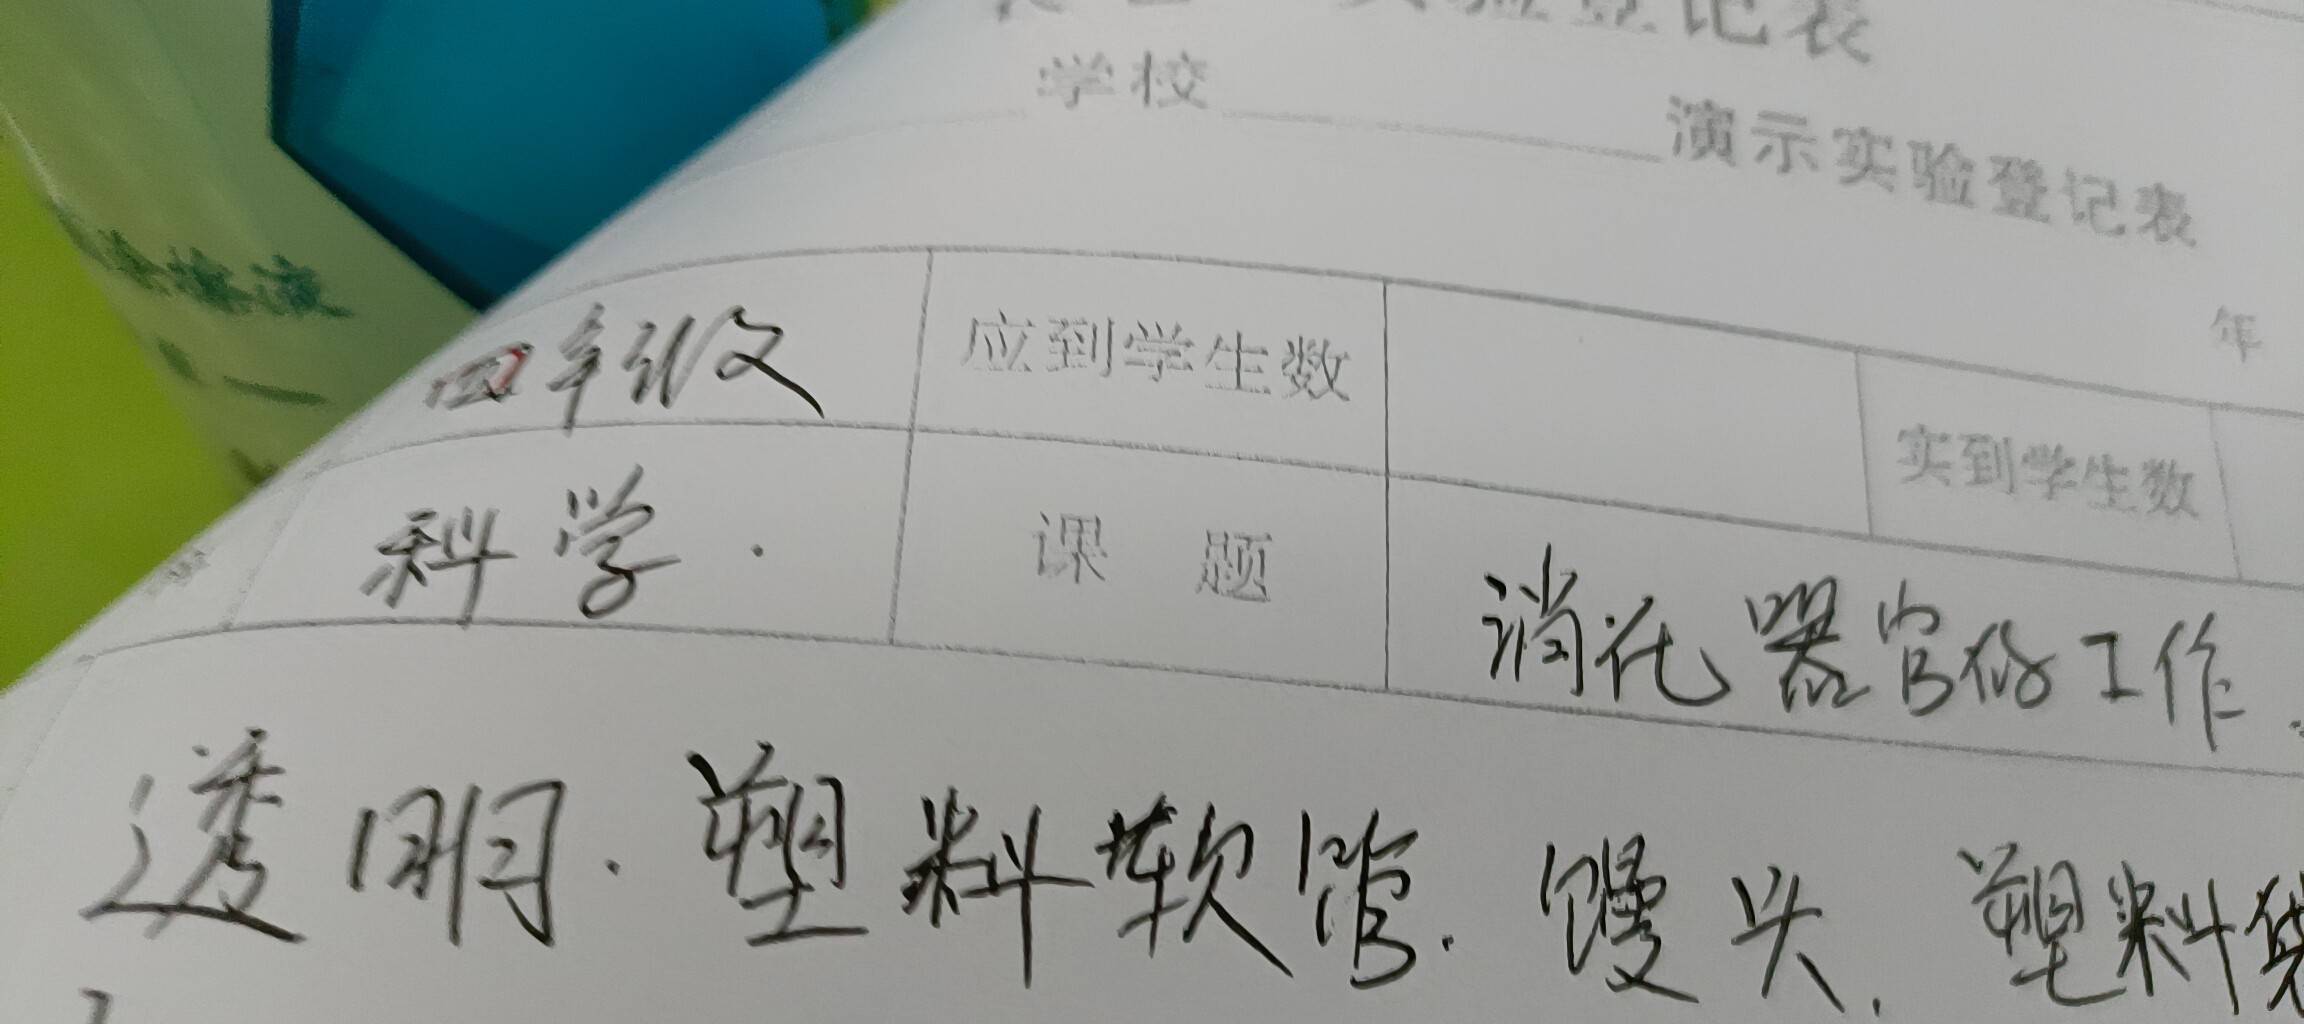 实验登记表
学校 演示实验登记表
年
四年级 应到学生数 实到学生数
科学. 课 题 消化器官的工作.
透明.塑料软管.馒头.塑料袋